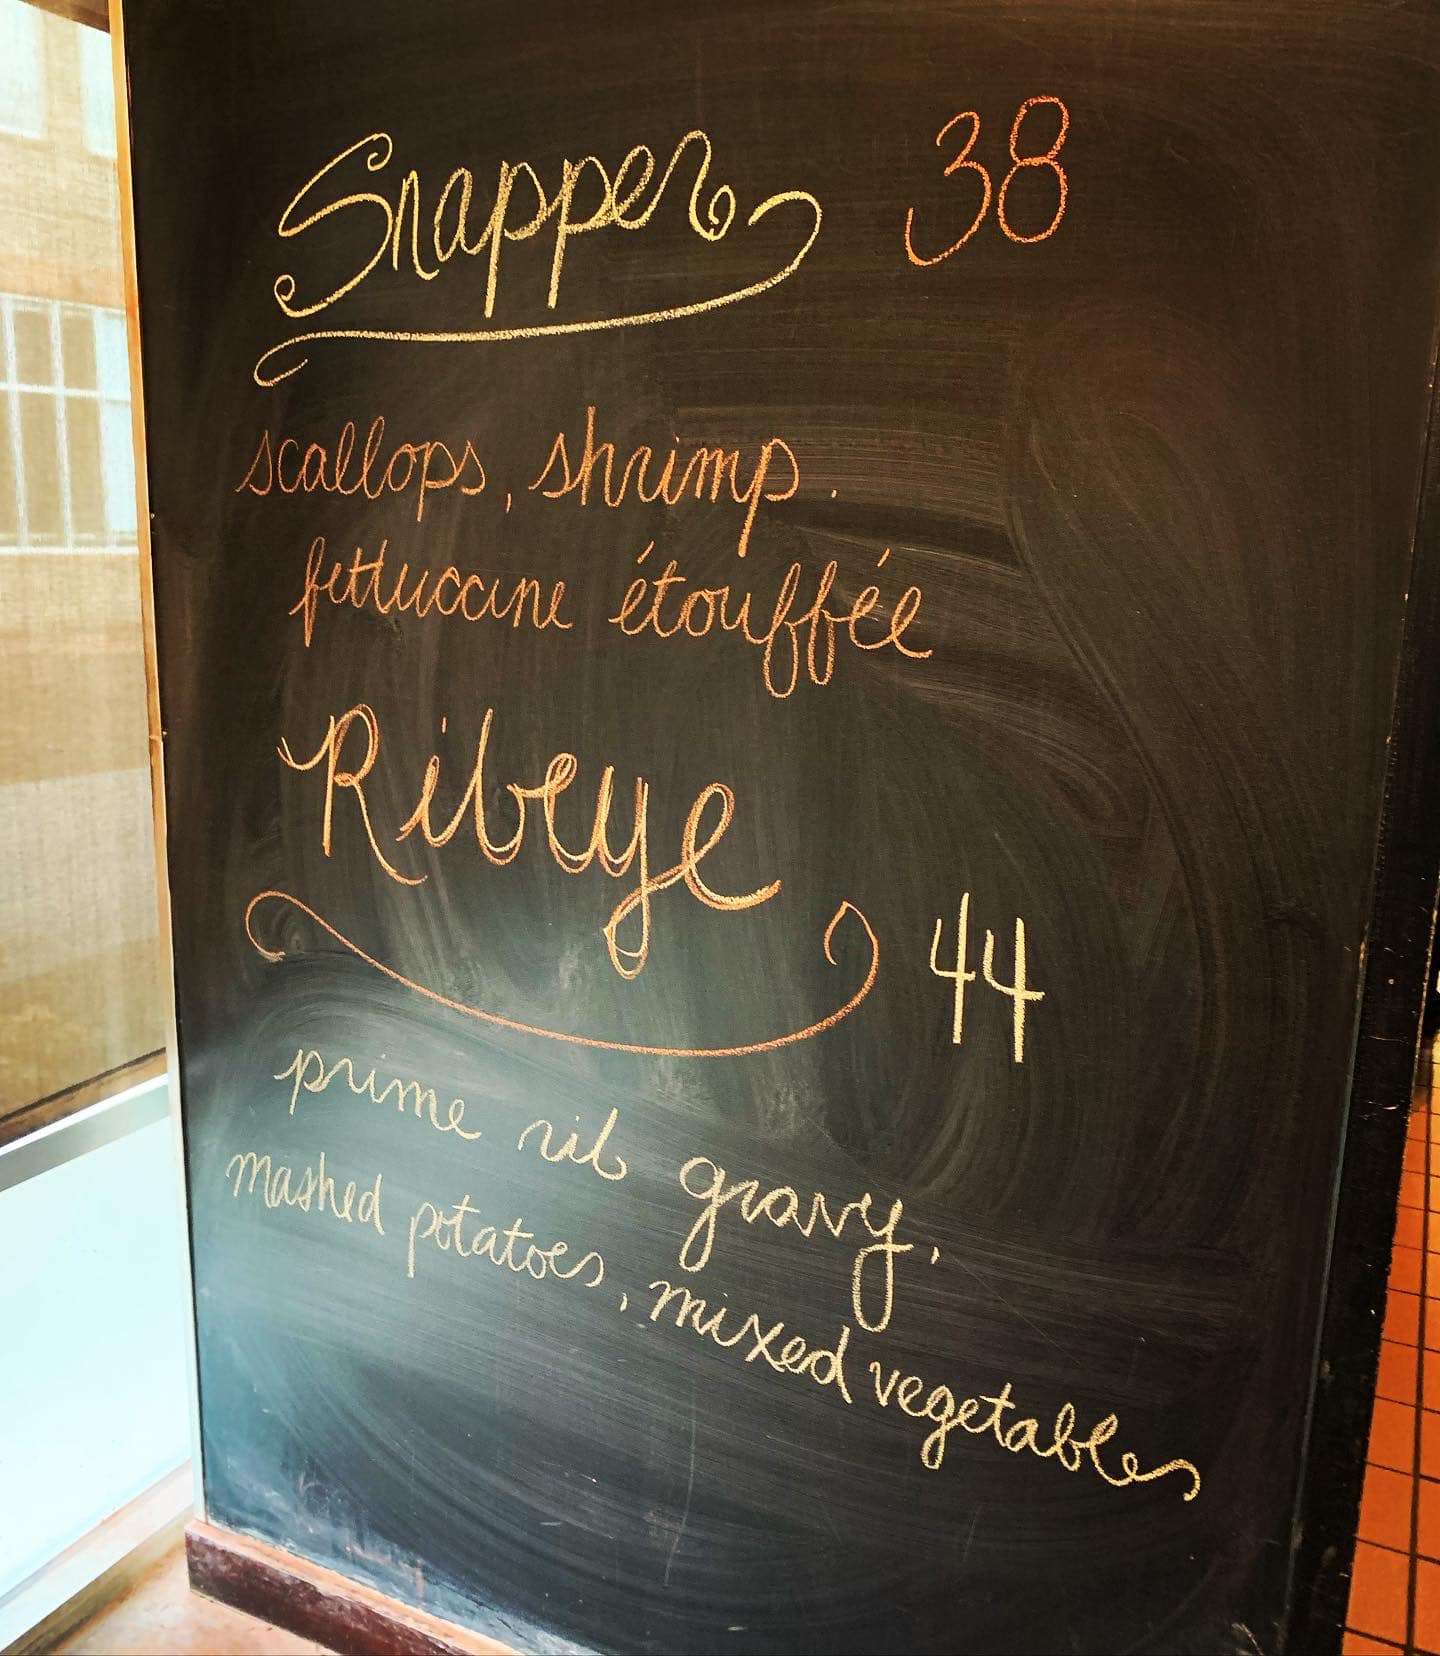 Snapper 38
scallops, shrimp.
fettuccine étouffée
Ribeye 44
prime rib gravy,
mashed potatoes, mixed vegetables